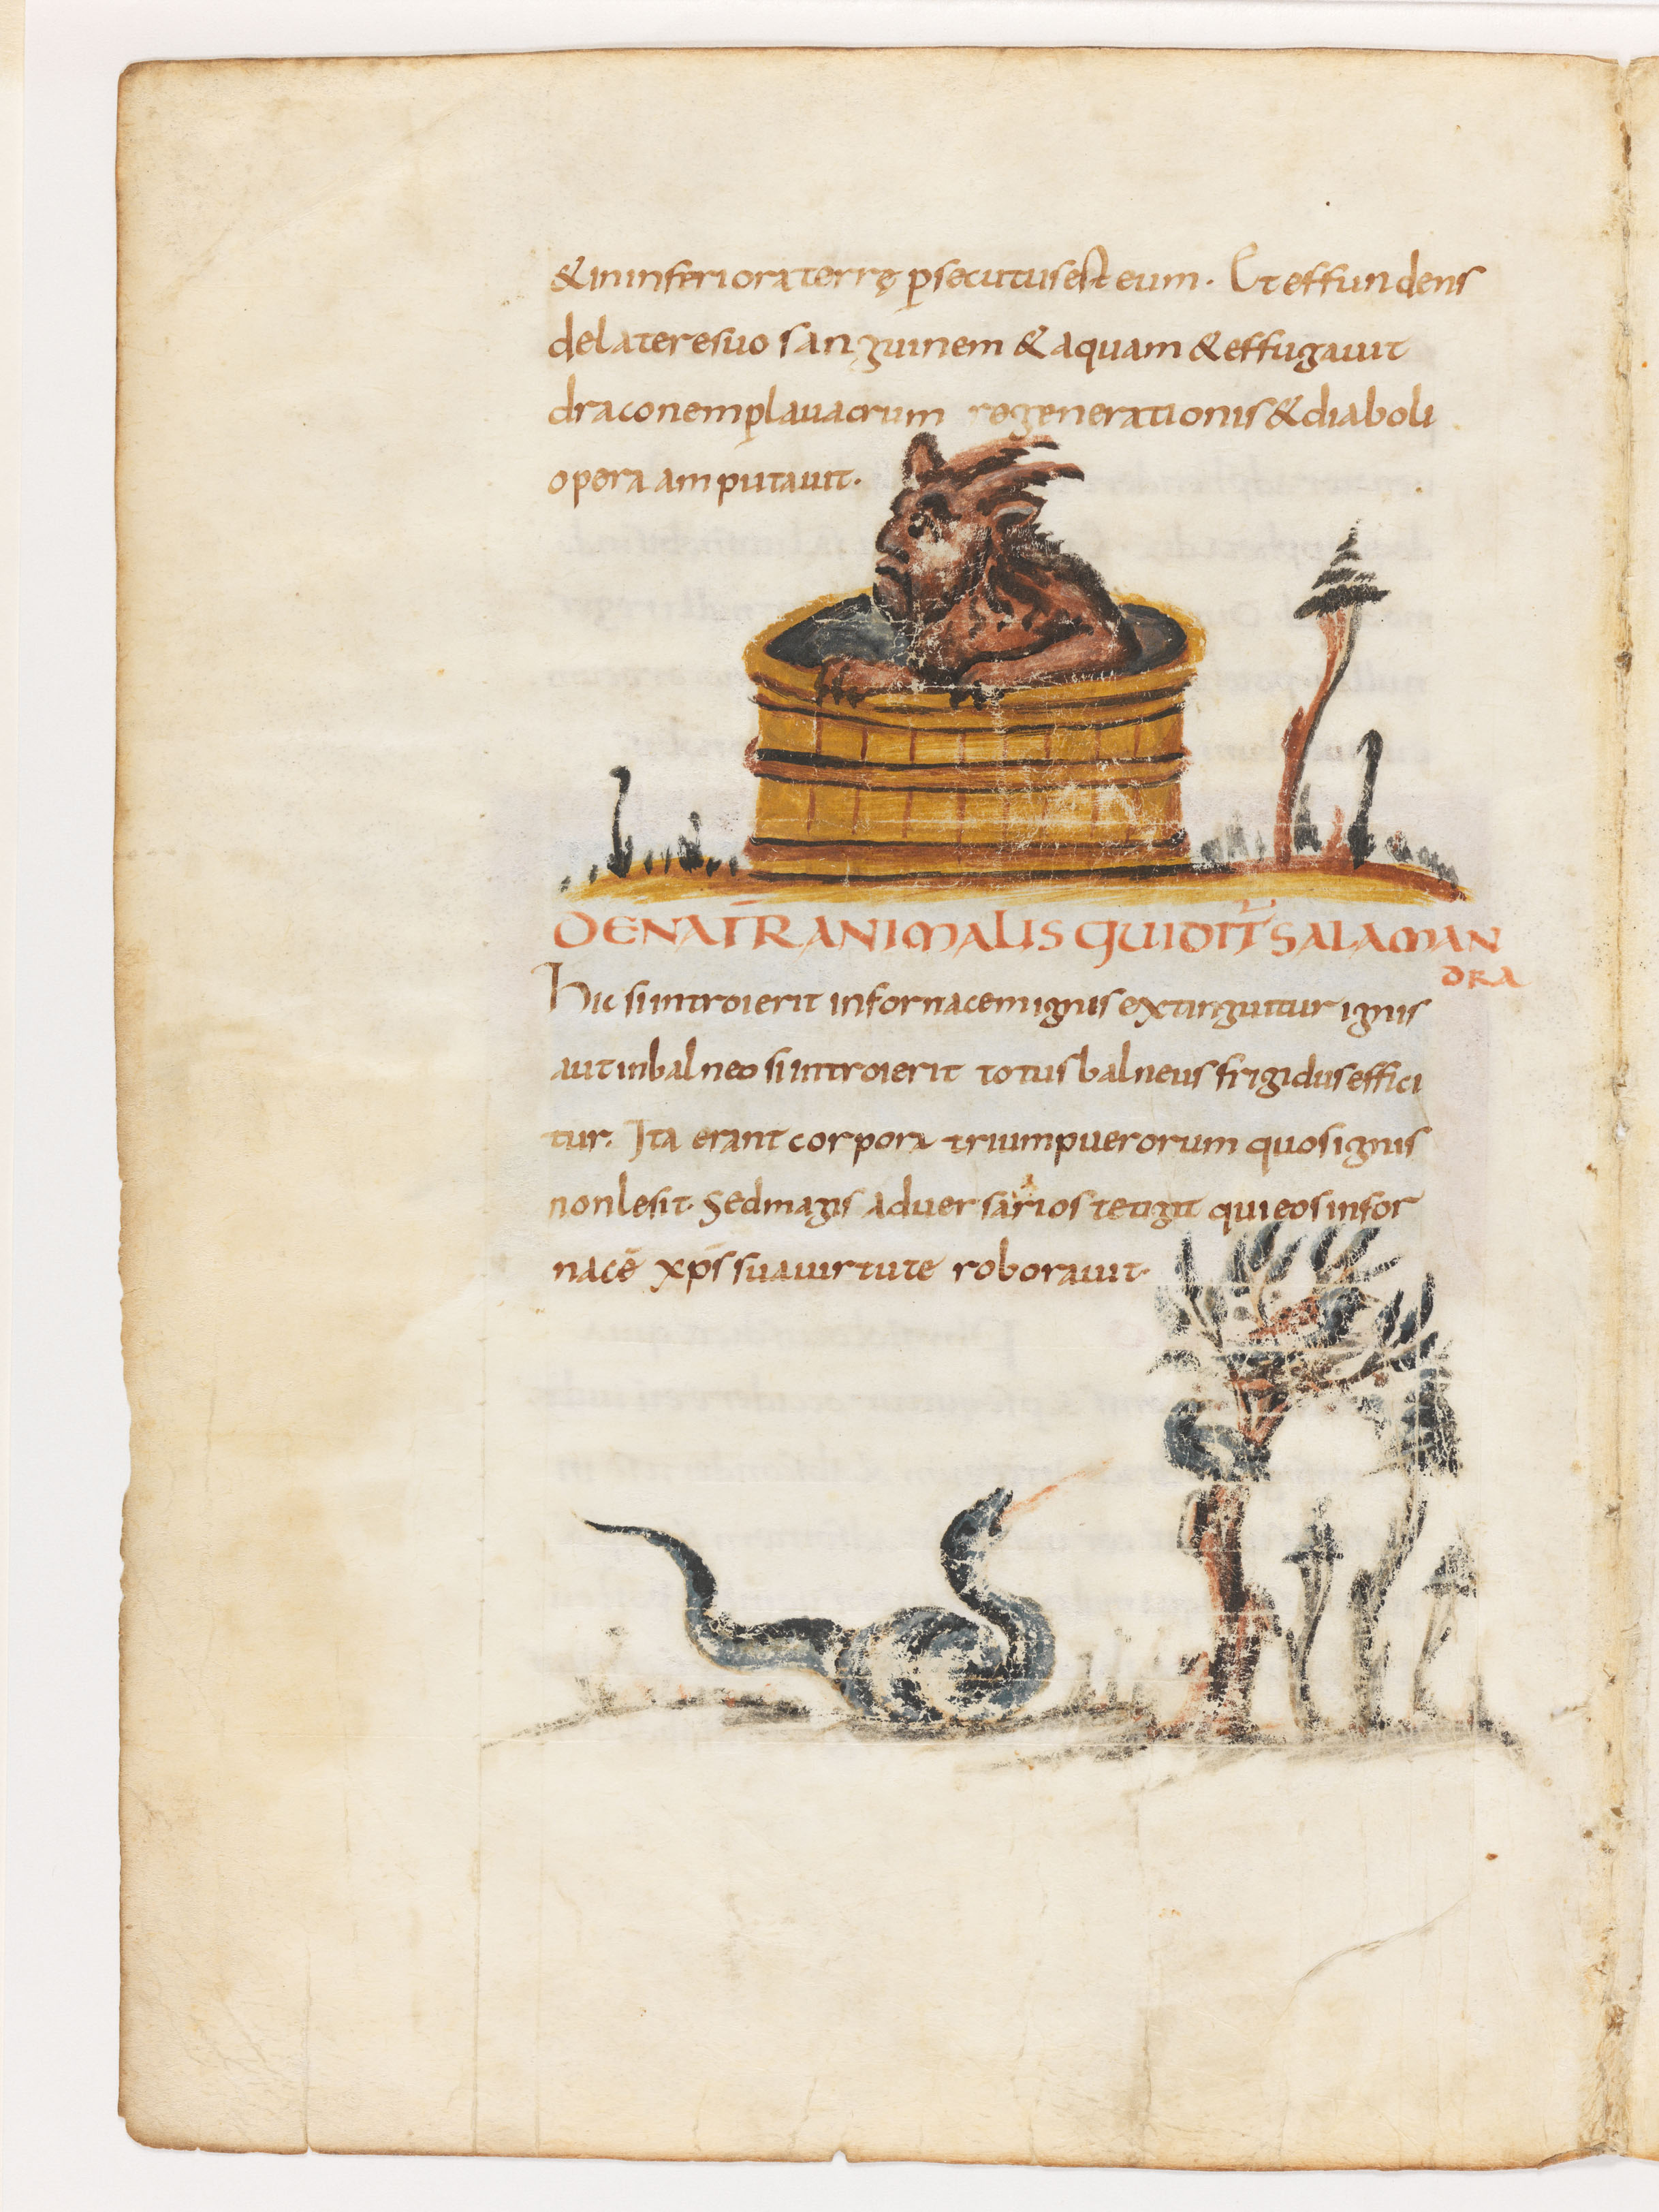 & in inferiora terrę ꝑsecutus est eum. Et effundens
de latere suo sanguinem & aquam & effugauit
draconem ꝑ lauacrum regenerationis & diaboli
opera amputauit.
DE NAT̅R ANIMALIS QUI DIT̅ SALAMAN
DRA
Hic si introierit in fornacem ignis extinguitur ignis
aut in balneo si introierit totus balneus frigidus effici
tur. Ita erant corpora trium puerorum quos ignis
non lesit. Sed magis aduersarios tetigit qui eos in for
nacē xp̅s sua uirtute roborauit.